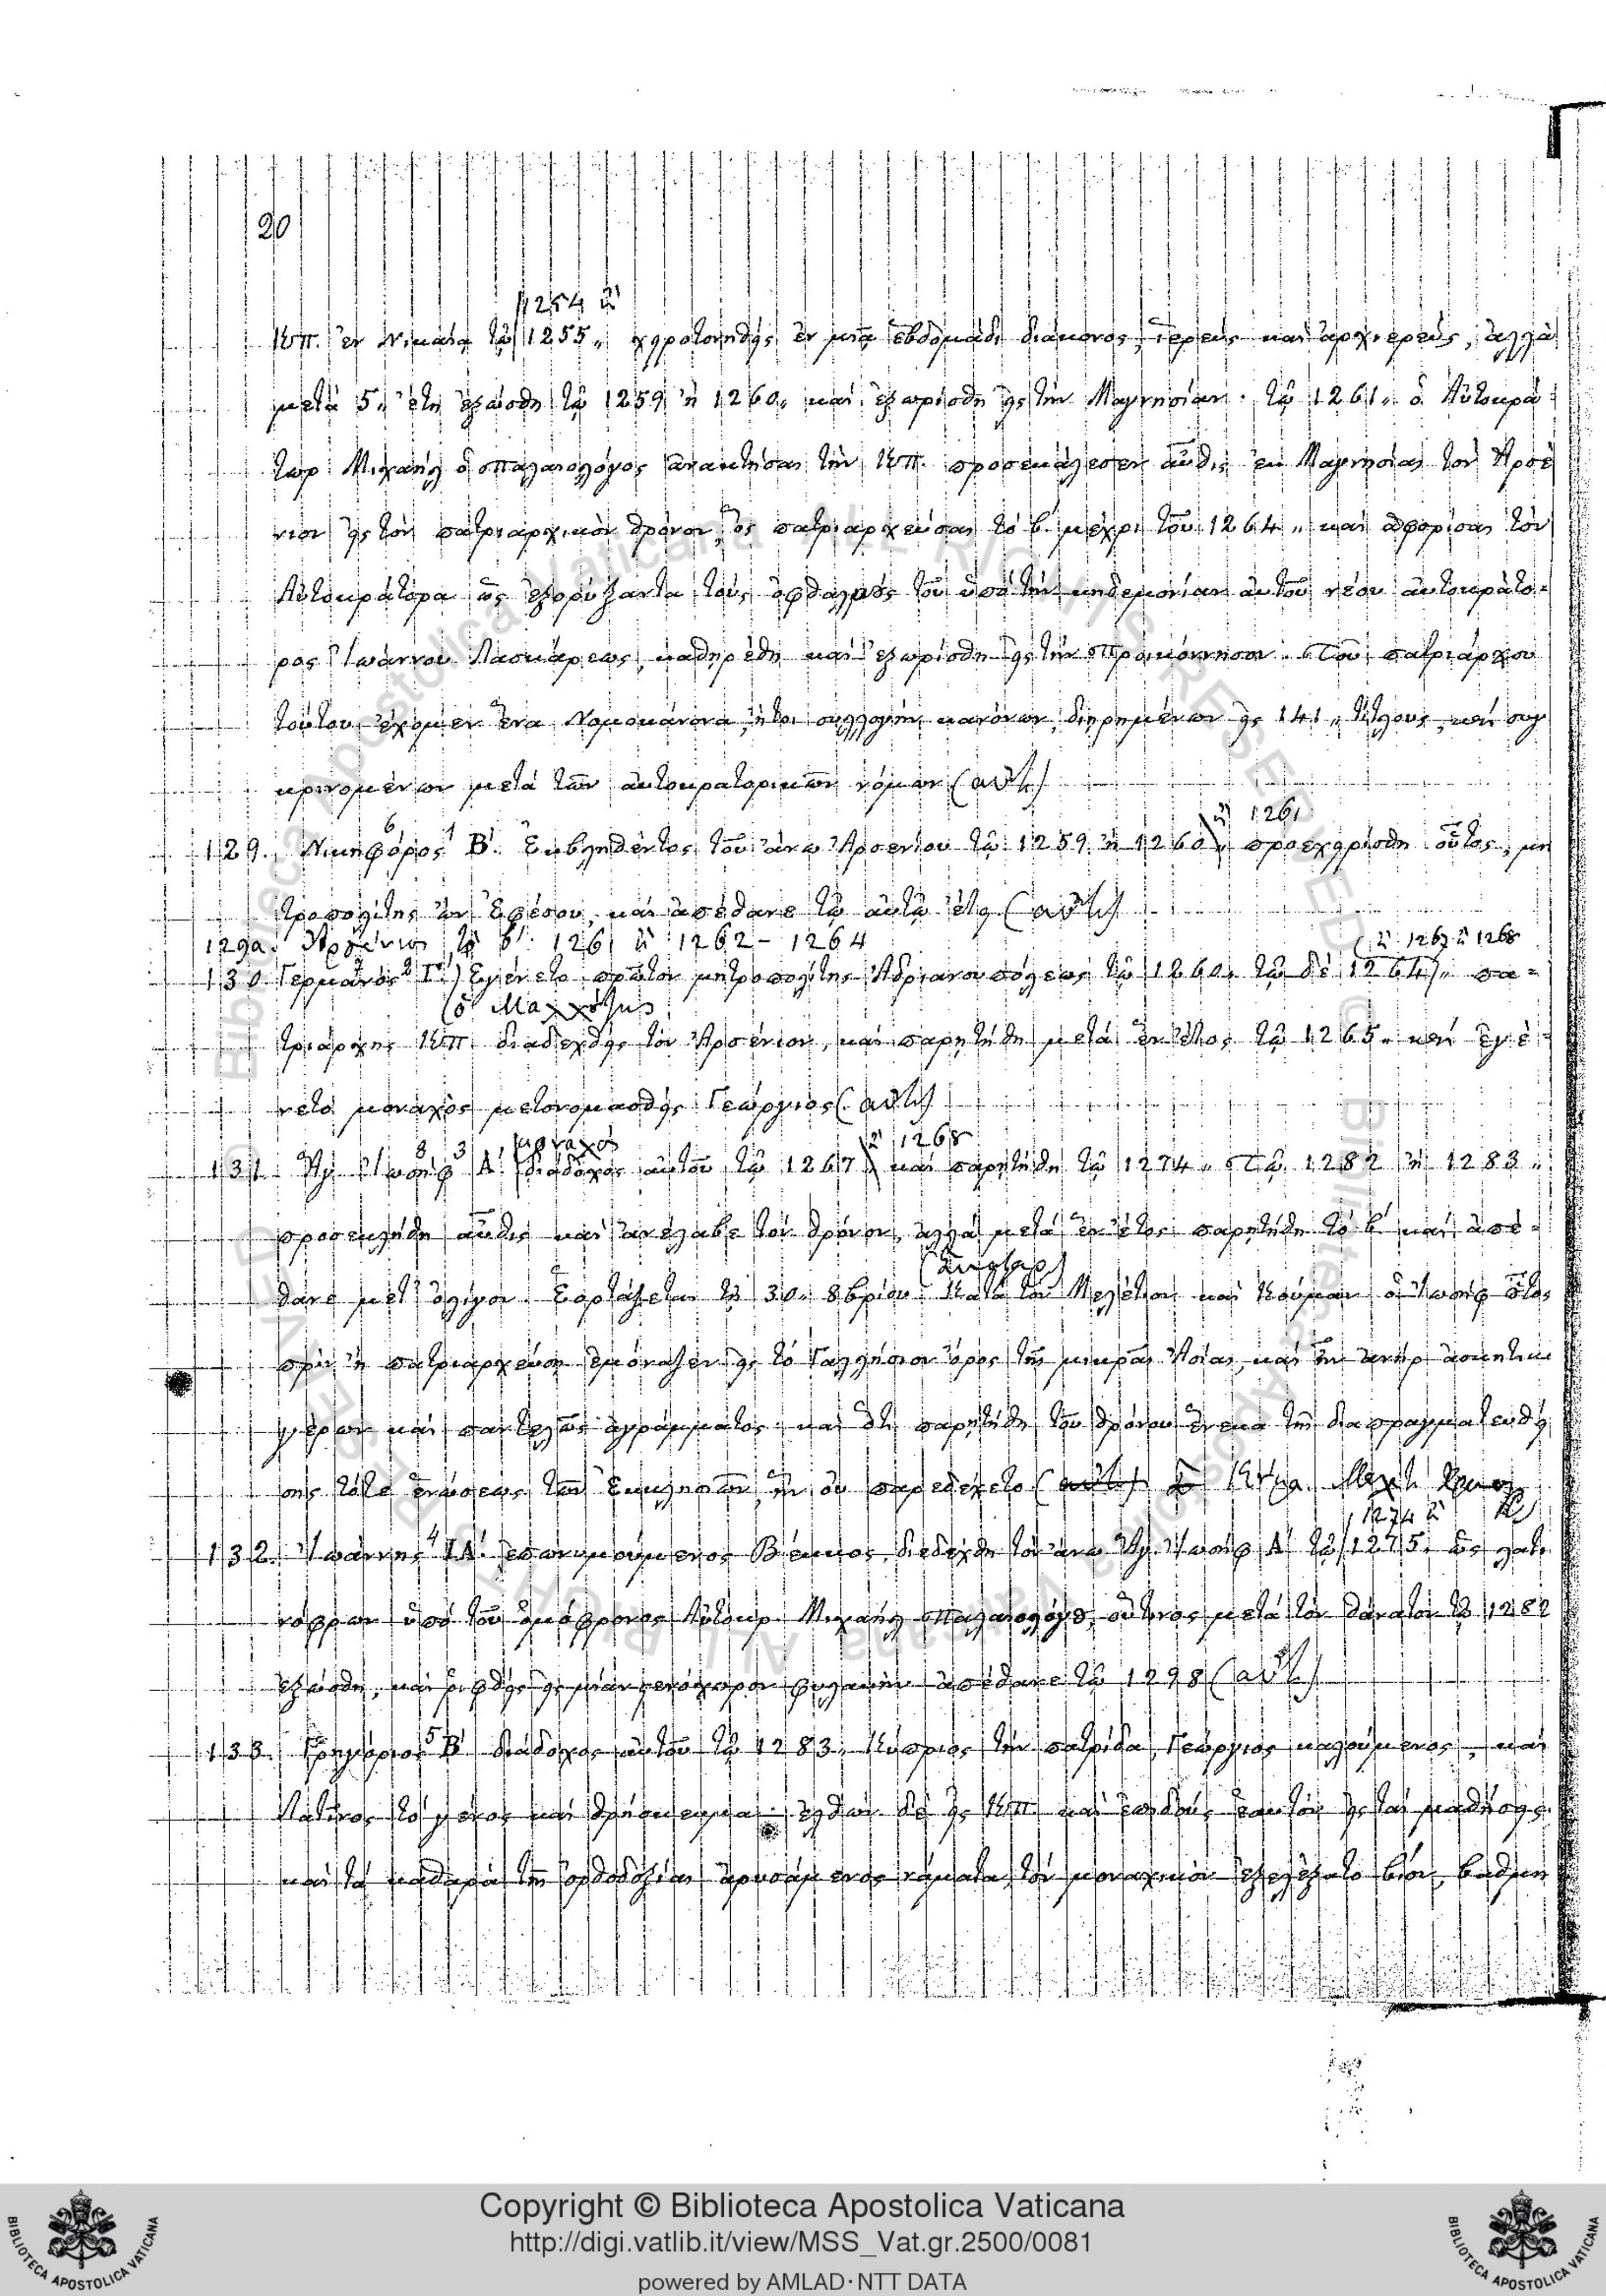 20
1254 ἢ
Κπ. ἐν Νικαίᾳ τῷ 1255,, χειροτονηθεὶς ἐν μιᾷ ἑβδομάδι διάκονος, ἱερεὺς καὶ ἀρχιερεύς, ἀλλὰ
μετὰ 5,, ἔτη ἐξώσθη τῷ 1259 ἢ 1260,, καὶ ἐξωρίσθη εἰς τὴν Μαγνησίαν. τῷ 1261,, ὁ Αὐτοκρά-
τωρ Μιχαὴλ ὁ Παλαιολόγος ἀνακτήσας τὴν Κπ. προσεκάλεσεν αὖθις ἐκ Μαγνησίας τὸν Ἀρσέ
νιον εἰς τὸν πατριαρχικὸν θρόνον, ὃς πατριαρχεύσας τὸ β. μέχρι τοῦ 1264,, καὶ ἀφορίσας τὸν
Αὐτοκράτορα ὡς ἐξορύξαντα τοὺς ὀφθαλμοὺς τοῦ ὑπὸ τὴν κηδεμονίαν αὐτοῦ νέου αὐτοκράτο-
ρος Ἰωάννου Λασκάρεως, καθηρέθη καὶ ἐξωρίσθη εἰς τὴν Προικόννησον. Τοῦ πατριάρχου
τούτου ἔχομεν ἕνα Νομοκάνονα, ἤτοι συλλογὴν κανόνων, διῃρημένων εἰς 141,, τίτλους, καὶ συγ
κρινομένων μετὰ τῶν αὐτοκρατορικῶν νόμων (αὐτ)
ἢ 1261
129. Νικηφόρος Β΄. Ἐκβληθέντος τοῦ ἄνω Ἀρσενίου τῷ 1259 ἢ 1260,, προεχειρίσθη οὗτος, μη
τροπολίτης ὢν Ἐφέσου, καὶ ἀπέθανε τῷ αὐτῷ ἔτει (αὐτ)
129a. Ἀρσένιος τὸ β΄. 1261 ἢ 1262 - 1264
(ἢ 1267 ἢ 1268
130 Γερμανὸς Γ΄.) Ἐγένετο πρῶτον μητροπολίτης Ἀδριανουπόλεως τῷ 1260,, τῷ δὲ 1264,, πα-
(ὁ
τριάρχης Κπ. διαδεχθεὶς τὸν Ἀρσένιον, καὶ παρῃτήθη μετὰ ἓν ἔτος τῷ 1265,, καὶ ἐγέ-
νετο μοναχὸς μετονομασθεὶς Γεώργιος (αὐτ)
μοναχὸς
ἢ 1268
131. Ἅγ. Ἰωσὴφ Α΄. διάδοχος αὐτοῦ τῷ 1267 καὶ παρῃτήθη τῷ 1274,, Τῷ 1282 ἢ 1283,,
προσεκλήθη αὖθις καὶ ἀνέλαβε τὸν θρόνον, ἀλλὰ μετὰ ἓν ἔτος παρῃτήθη τὸ β΄ καὶ ἀπέ-
θανε μετ' ὀλίγον. Ἑορτάζεται τῇ 30,, 8βρίου. Κατὰ τὸν Μελέτιον καὶ Κούμαν ὁ Ἰωσὴφ οὗτος
πρὶν ἢ πατριαρχεύσῃ ἐμόναζεν εἰς τὸ Γαλλήσιον ὄρος τῆς μικρᾶς Ἀσίας, καὶ ἦν ἀνὴρ ἀσκητικὸς
γέρων καὶ παντελῶς ἀγράμματος καὶ ὅτι παρῃτήθη τοῦ θρόνου ἕνεκα τῆς διαπραγματευθεί
σης τότε ἑνώσεως τῶν Ἐκκλησιῶν, ἣν οὐ παρεδέχετο (αὐτ)
1274 ἢ
132. Ἰωάννης ΙΑ΄. ἐπονομούμενος Βέκκος, διεδέχθη τὸν ἄνω Ἅγ. Ἰωσὴφ Α΄ τῷ 1275,, ὡς λατι
νόφρων ὑπὸ τοῦ ὁμόφρονος Αὐτοκρ. Μιχαὴλ Παλαιολόγου, οὗτινος μετὰ τὸν θάνατον τῷ 1282
ἐξώσθη, καὶ ῥιφθεὶς εἰς μίαν στενόχωρον φυλακὴν ἀπέθανε τῷ 1298 (αὐτ)
133. Γρηγόριος Β΄ διάδοχος αὐτοῦ τῷ 1283,, Κύπριος τὴν πατρίδα, Γεώργιος καλούμενος, καὶ
Λατῖνος τὸ γένος καὶ θρήσκευμα. ἐλθὼν δὲ εἰς Κπ. καὶ ἐπιδοὺς ἑαυτὸν εἰς τὰς μαθήσεις
καὶ τὰ καθαρὰ τῆς ὀρθοδοξίας ἀρυσάμενος νάματα, τὸν μοναχικὸν ἐξελέξατο βίον, βαθμη
Copyright © Biblioteca Apostolica Vaticana
http://digi.vatlib.it/view/MSS_Vat.gr.2500/0081
powered by AMLAD·NTT DATA